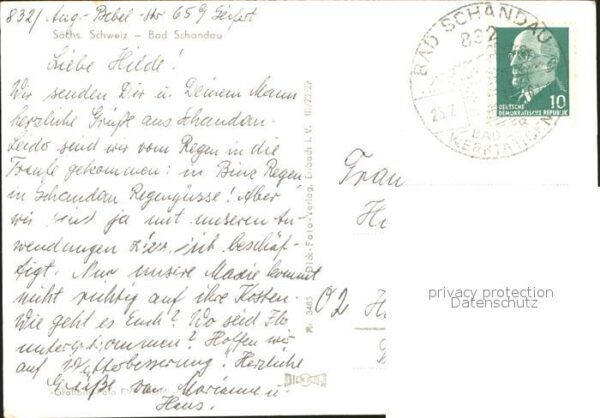 832/ Aug-Bebel-Str 65 b. Seifert
Sächs. Schweiz – Bad Schandau
Liebe Hilde!
Wir senden Dir u. Deinem Mann
herzliche Grüße aus Schandau.
Leider sind wir vom Regen in die
Traufe gekommen: in Binz Regen
in Schandau Regengüsse! Aber
wir sind ja mit unseren An-
wendungen hier beschäf-
tigt. Nur unsere kommt
nicht richtig auf ihre Kosten.
Wie geht es Euch? Wo seid Ihr
untergekommen? Hoffen wir
auf Wetterbesserung! Herzliche
Grüße von Marianne u.
Hans.
Nr. 3465
Bick-Foto-Verlag, Einbach i. V.
BAD SCHANDAU
832
BAD
DEUTSCHE
DEMOKRATISCHE REPUBLIK
10
Frau
privacy protection
Datenschutz